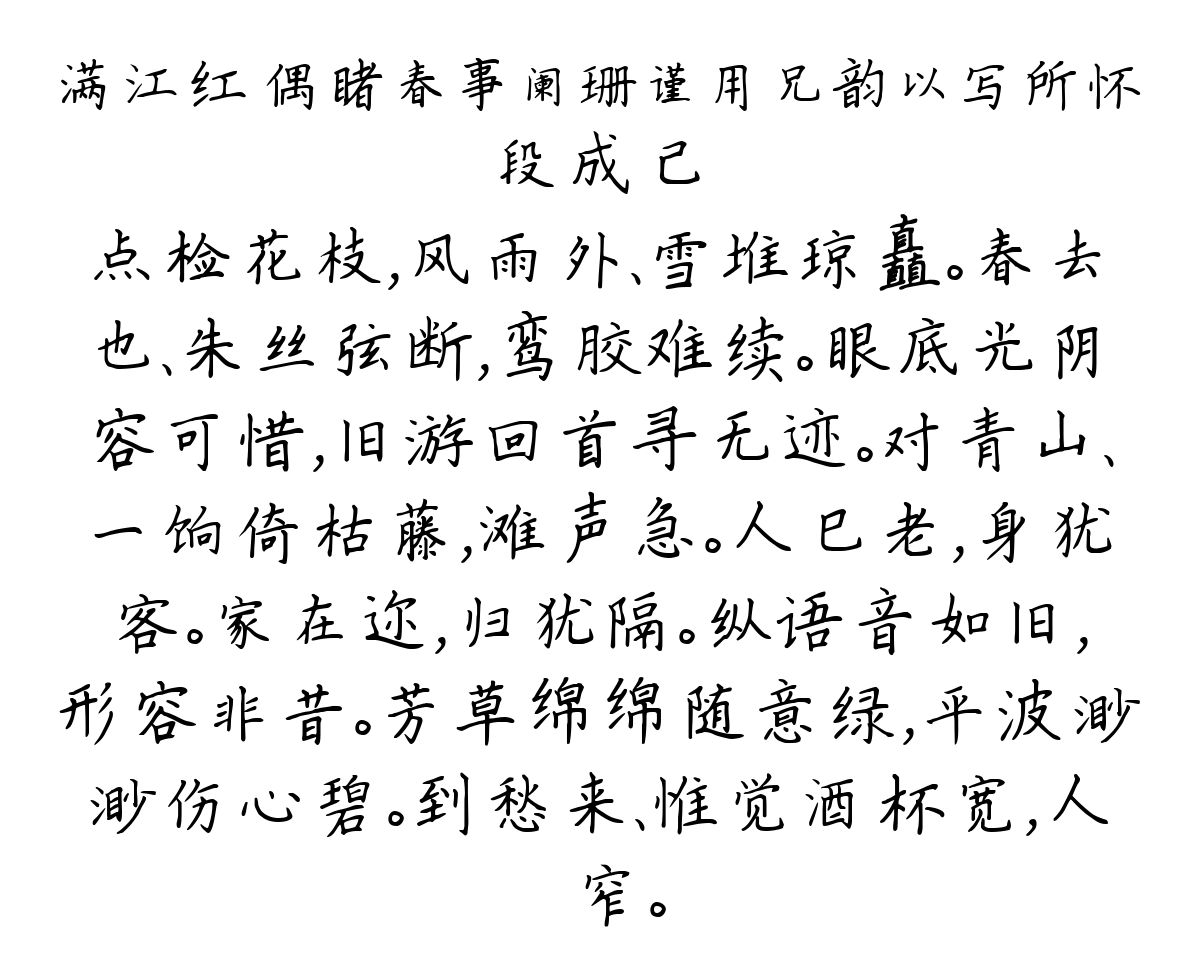 满江红偶睹春事阑珊谨用兄韵以写所怀
段成己
点检花枝,风雨外、雪堆琼矗。春去
也、朱丝弦断,鸾胶难续。眼底光阴
容可惜,旧游回首寻无迹。对青山、
一饷倚枯藤,滩声急。人巳老,身犹
客。家在迩,归犹隔。纵语音如旧,
形容非昔。芳草绵绵随意绿,平波渺
渺伤心碧。到愁来、惟觉酒杯宽,人
窄。